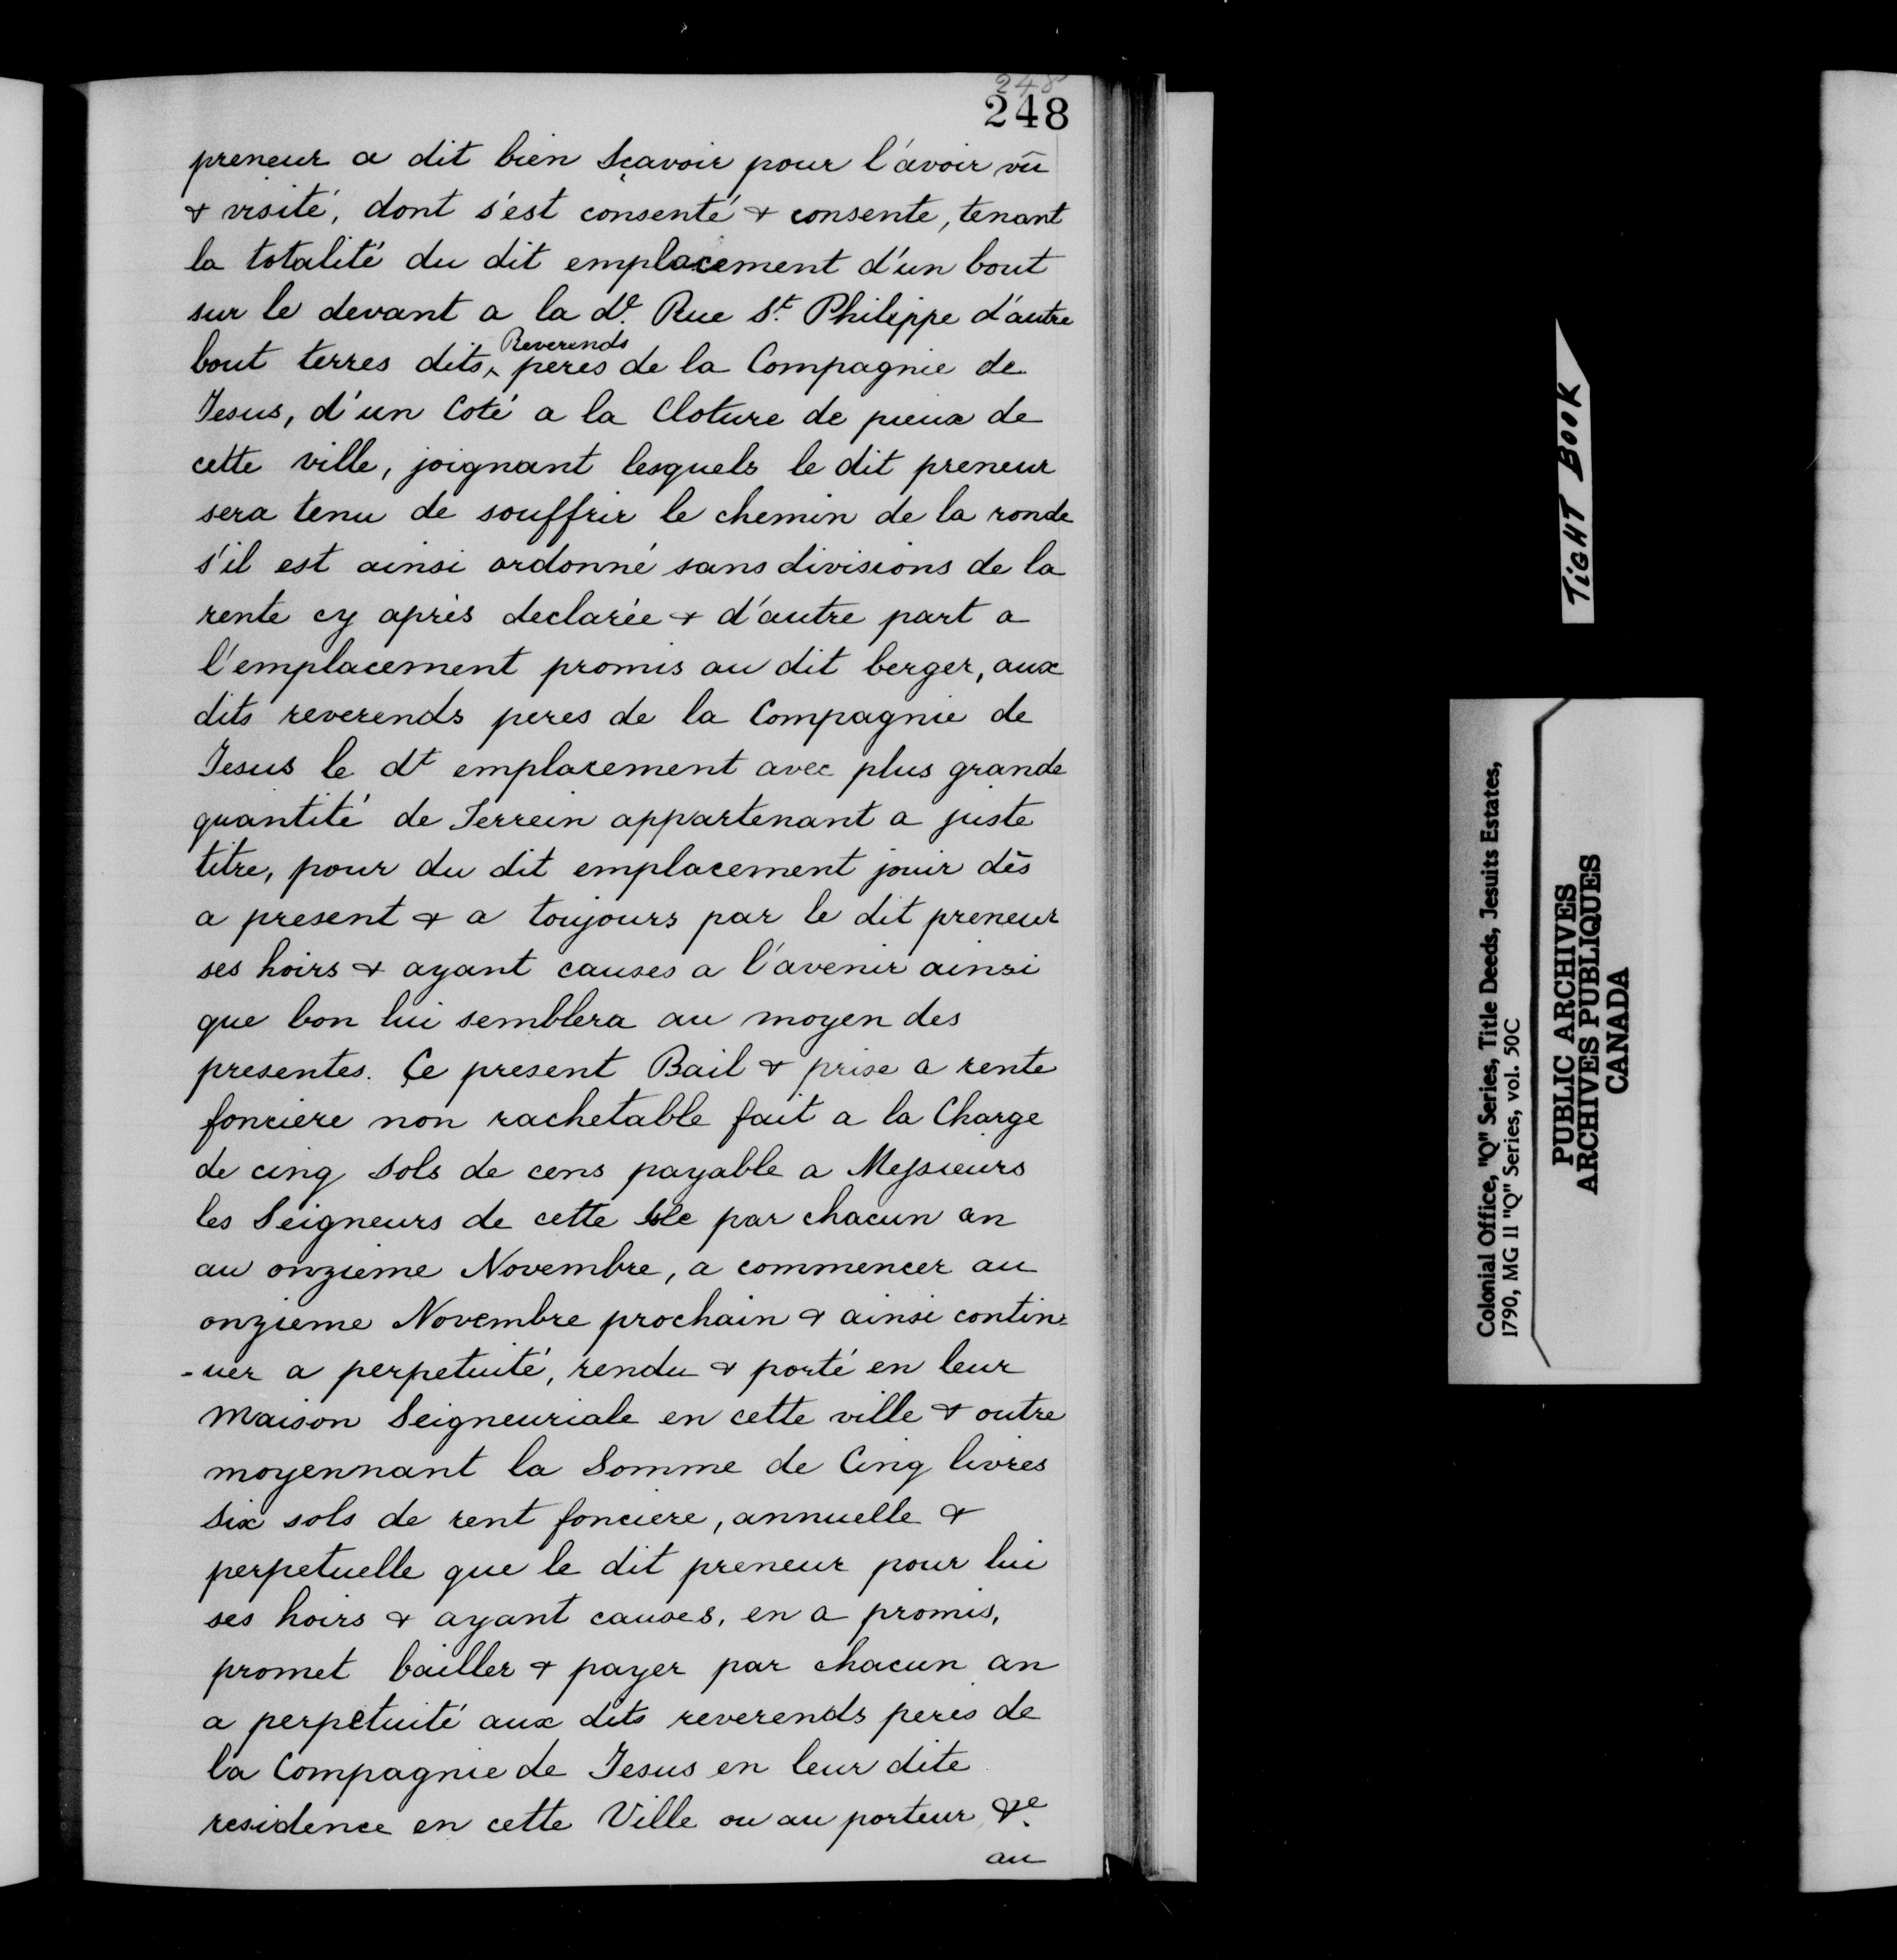 248
248
preneur a dit bien Sçavoir pour l'avoir vû
& visité, dont s'est consenté & consente, tenant
la totalité du dit emplacement d'un bout
sur le devant a la de. Rue St. Philippe d'autre
bout terres dits ^ Reverends peres de la Compagnie de
Jesus, d'un Coté a la Cloture de pieux de
cette ville, joignant lesquels le dit preneur
sera tenu de souffrir le chemin de la ronde
s'il est ainsi ordonné sans divisions de la
rente cy après declarée & d'autre part a
l'emplacement promis au dit berger, aux
dits reverends peres de la Compagnie de
Jesus le dt emplacement avec plus grande
quantité de Terrein appartenant a juste
titre, pour du dit emplacement jouir dès
a present & a toujours par le dit preneur
ses hoirs & ayant causes a l'avenir ainsi
que bon lui semblera au moyen des
presentes. Ce present Bail & prise a rente
fonciere non rachetable fait a la Charge
de cinq Sols de cens payable a Messieurs
les Seigneurs de cette Isle par chacun an
au onzieme Novembre, a commencer au
onzieme Novembre prochain & ainsi contin=
-uer a perpetuité, rendu & porté en leur
Maison Seigneuriale en cette ville & outre
moyennant la Somme de Cinq livres
Six sols de rent fonciere, annuelle &
perpetuelle que le dit preneur pour lui
ses hoirs & ayant causes, en a promis,
promet bailler & payer par chacun an
a perpetuité aux dits reverends peres de
la Compagnie de Jesus en leur dite
residence en cette Ville ou au porteur &e.
au
TIGHT BOOK
Colonial Office, "Q" Series, Title Deeds, Jesuits Estates,
1790, MG 11 "Q" Series, vol. 50C
PUBLIC ARCHIVES
ARCHIVES PUBLIQUES
CANADA